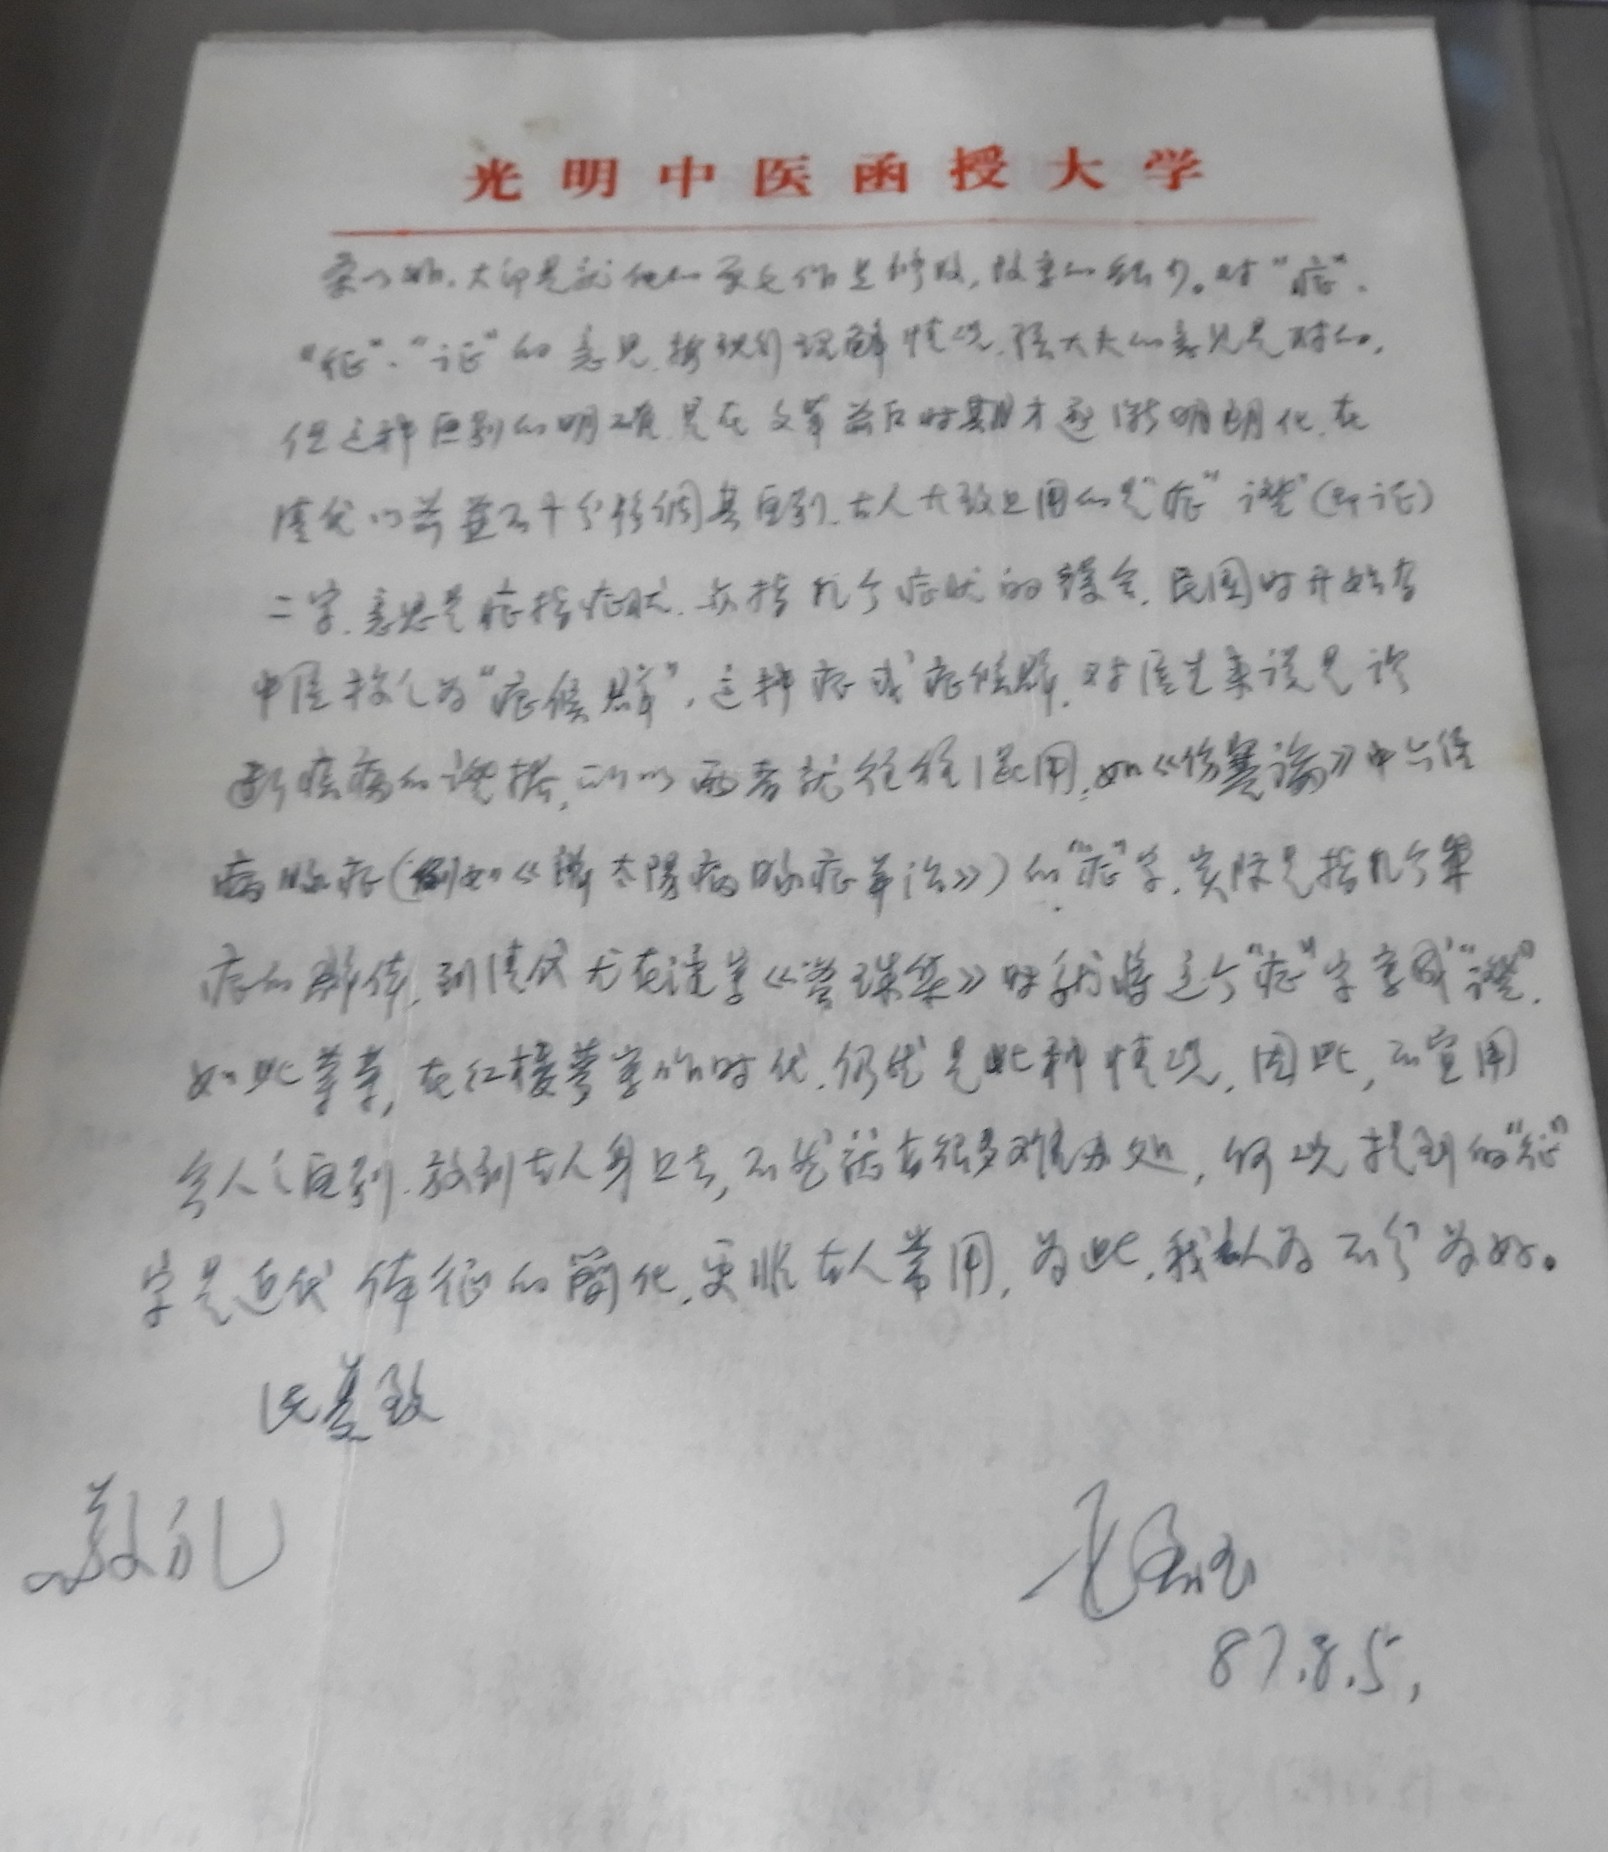 光明中医函授大学
大印是就他的 作些修改,
"征"、"证"的意见,按现行理解情况,张大夫的意见是对的,
但这种区别的明确,是在文革前后时期才逐渐明朗化,在
清代以前并不十分强调其区别,古人大致上用的是"症""證"(即证)
二字,意思是症指症状,亦指几个症状的综合,民国时开始有
中医称之为"症候群",这种症或症候群,对医生来说是诊
断疾病的證据,所以两者就往往混用,如《伤寒论》中六经
病脉症(例如《辨太陽病脉症并治》)的"症"字,实际是指几个单
症的群体,到清代尤在泾写《贯珠集》时就将这个"症"字写成"證",
如此等等,在红楼梦写作时代,仍然是此种情况,因此,不宜用
今人之区别,放到古人身上去,不然就有很多难办处,何况提到的"征"
字是近代体征的简化,更非古人常用,为此,我认为不分为好。
谨复致
敬礼
87.8.5,